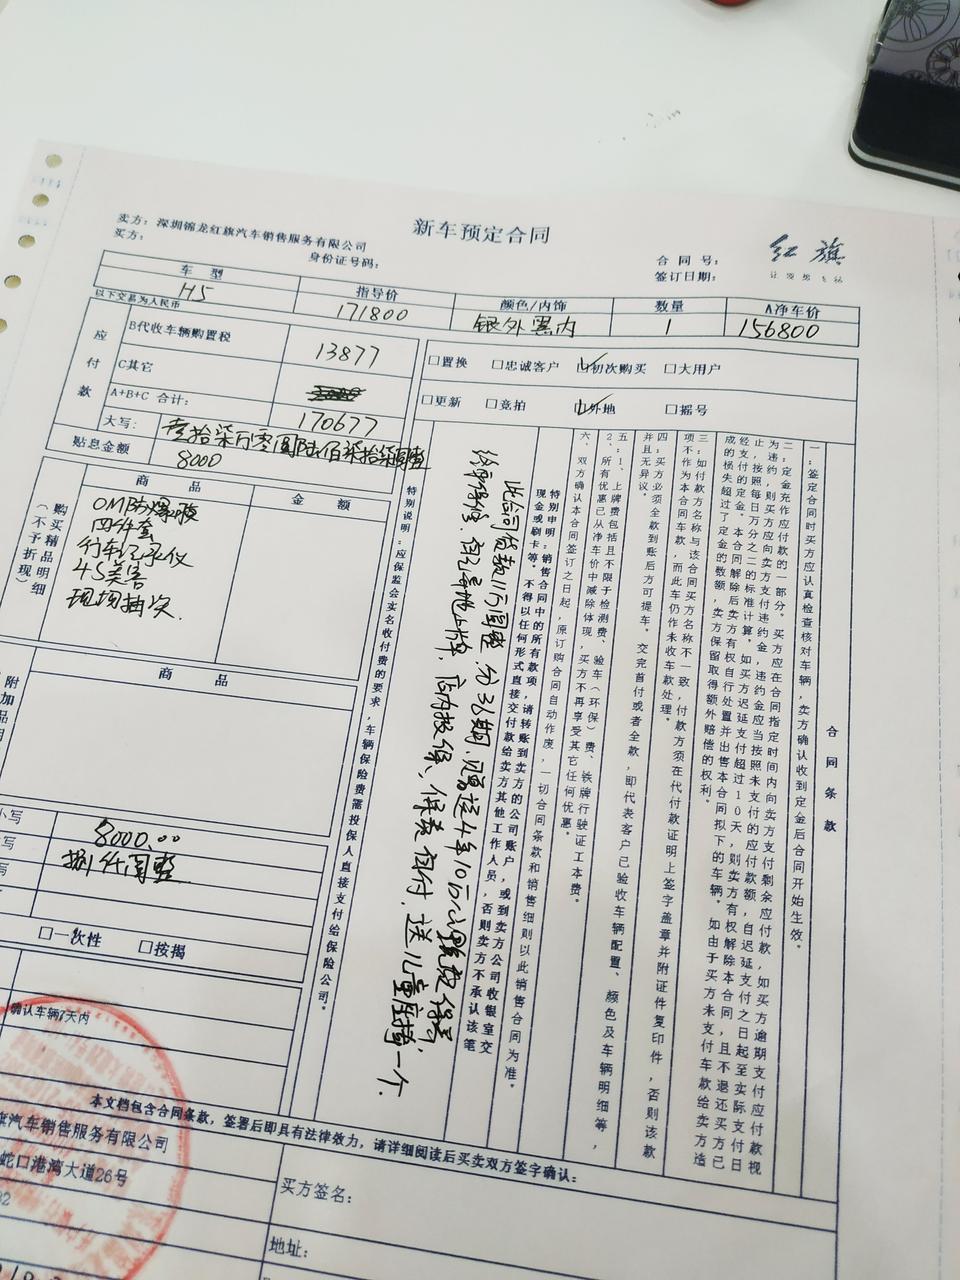 新车预定合同
红旗
卖方：深圳锦龙红旗汽车销售服务有限公司
买方：
身份证号码：
合同号：
签订日期：
车 型
指导价
颜色/内饰
数量
A净车价
H5
171800
银外黑内
1
156800
以下交易为人民币
应付款
B代收车辆购置税
13877
C其它
A+B+C 合计：
170677
大写：
壹拾柒万零圆陆佰柒拾柒圆整
贴息金额
8000
□置换
□忠诚客户
☑初次购买
□大用户
□更新
□竞拍
☑外地
□摇号
购买精品明细
（不予折现）
商 品
金 额
四件套
行车记录仪
现场抽次
商 品
附加
小写
8000.00
捌仟圆整
□一次性
□按揭
确认车辆7天内
合同条款
一：签定合同时买方应认真检查核对车辆，卖方确认收到定金后合同开始生效。
二：定金充作应付款的一部分。买方应在合同指定时间内向卖方支付剩余应付款，如买方逾期支付应付款视
为违约，则买方应向卖方支付违约金，违约金应当按照未支付的应付款额，自迟延支付之日起至实际支付日
止，按照每日万分之二的标准计算。如买方迟延支付超过10天，则卖方有权解除本合同，且不退还买方已
经支付的定金。本合同解除后卖方有权自行处置并出售本合同拟下的车辆。如由于买方未支付车款给卖方造
成的损失超过了定金的数额，卖方保留取得额外赔偿的权利。
三：如付款方名称与该合同买方名称不一致，付款方须在代付款证明上签字盖章并附证件复印件，否则该款
项不作为本合同车款，而此车仍作未收车款处理。
四：买方必须全款到账后方可提车。交完首付或者全款，即代表客户已验收车辆配置、颜色及车辆明细等，
并且无异议。
五：1、上牌费包括且不限于检测费、验车（环保）费、铁牌行驶证工本费。
2、所有优惠已从净车价中减除体现，买方不再享受其它任何优惠。
六、双方确认本合同签订之日起，原订购合同自动作废，一切合同条款和销售细则以此销售合同为准。
特别申明：销售合同中的所有款项，请转账到卖方的公司账户，或到卖方公司收银室交
现金或刷卡等。不得以任何形式直接交付款给卖方其他工作人员，否则卖方不承认该笔
此合同贷款11万圆整，分36期，赠送4年10万公里
店内投保、保费自付，送儿童座椅一个.
特别说明：应保监会实名收付费的要求，车辆保险费需投保人直接支付给保险公司。
本文档包含合同条款，签署后即具有法律效力，请详细阅读后买卖双方签字确认：
旗汽车销售服务有限公司
蛇口港湾大道26号
买方签名：
地址：